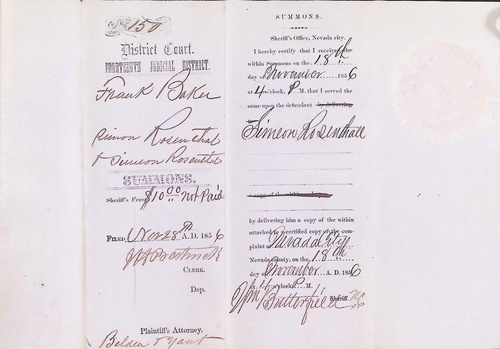 No 150
District Court.
FOURTEENTH JUDICIAL DISTRICT.
Frank Baker
Simon Rosenthal
& Simeon Rosenthal
SUMMONS.
Sheriff's Fees, $10.00 not Paid
FILED, Nov 28th A. D. 1856
CLERK.
Dep.
Plaintiff's Attorney.
Belden &
SUMMONS.
Sheriff's Office, Nevada city.
I hereby certify that I received the
within Summons on the 18th
day of November 1856
at 4 o'clock, P. M. that I served the
same upon the defendant by delivering
Simeon Rosenthall
by delivering him a copy of the within
attached to a certified copy of the com-
plaint at Nevada City
Nevada county, on the 18th
day of November A. D. 1856
at 4 o'clock P. M.
Wm Butterfield Sheriff